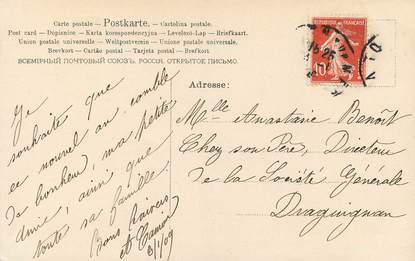 Carte postale — Postkarte. — Cartolina postale.
Post card — Dopisnice — Karta korespondencyjna — Levelezö-Lap — Briefkaart.
Union postale universelle — Weltpostverein — Unione postale universale.
Brevkort — Cartão postal — Tarjeta postal — Brefkort
ВСЕМІРНЫЙ ПОЧТОВЫЙ СОЮЗЪ. РОССІЯ. ОТКРЫТОЕ ПИСЬМО.
Adresse:
Je
souhaite que
ce nouvel an comble
de bonheur, ma petite
amie, ainsi que
toute sa famille.
Bons baisers
3/1/09
Mlle Anastasie Benoît
Chez son Père, Directeur
de la Société Générale
Draguignan
10